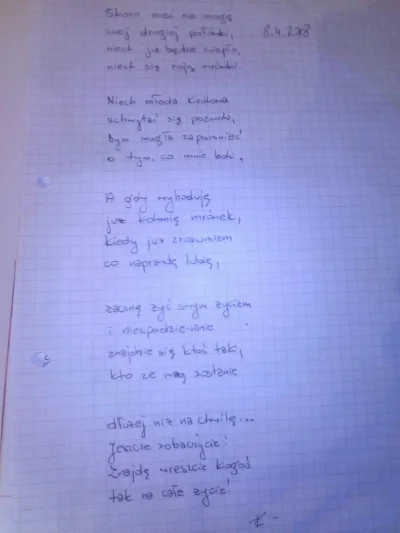 Skoro mieć nie mogę
swej drugiej połówki,
8.4.2018
niech już będzie ciepło,
niech się roją mrówki.
Niech młoda królowa
schwytać się pozwoli,
bym mogła zapomnieć
o tym, co mnie boli.
A gdy wyhoduję
już kolonię mrówek,
kiedy już zrozumiem
co naprawdę lubię,
zacznę żyć swym życiem
i niespodziewanie
znajdzie się ktoś taki,
kto ze mną zostanie
dłużej niż na chwilę...
Jeszcze zobaczycie!
Znajdę wreszcie kogoś
tak na całe życie!